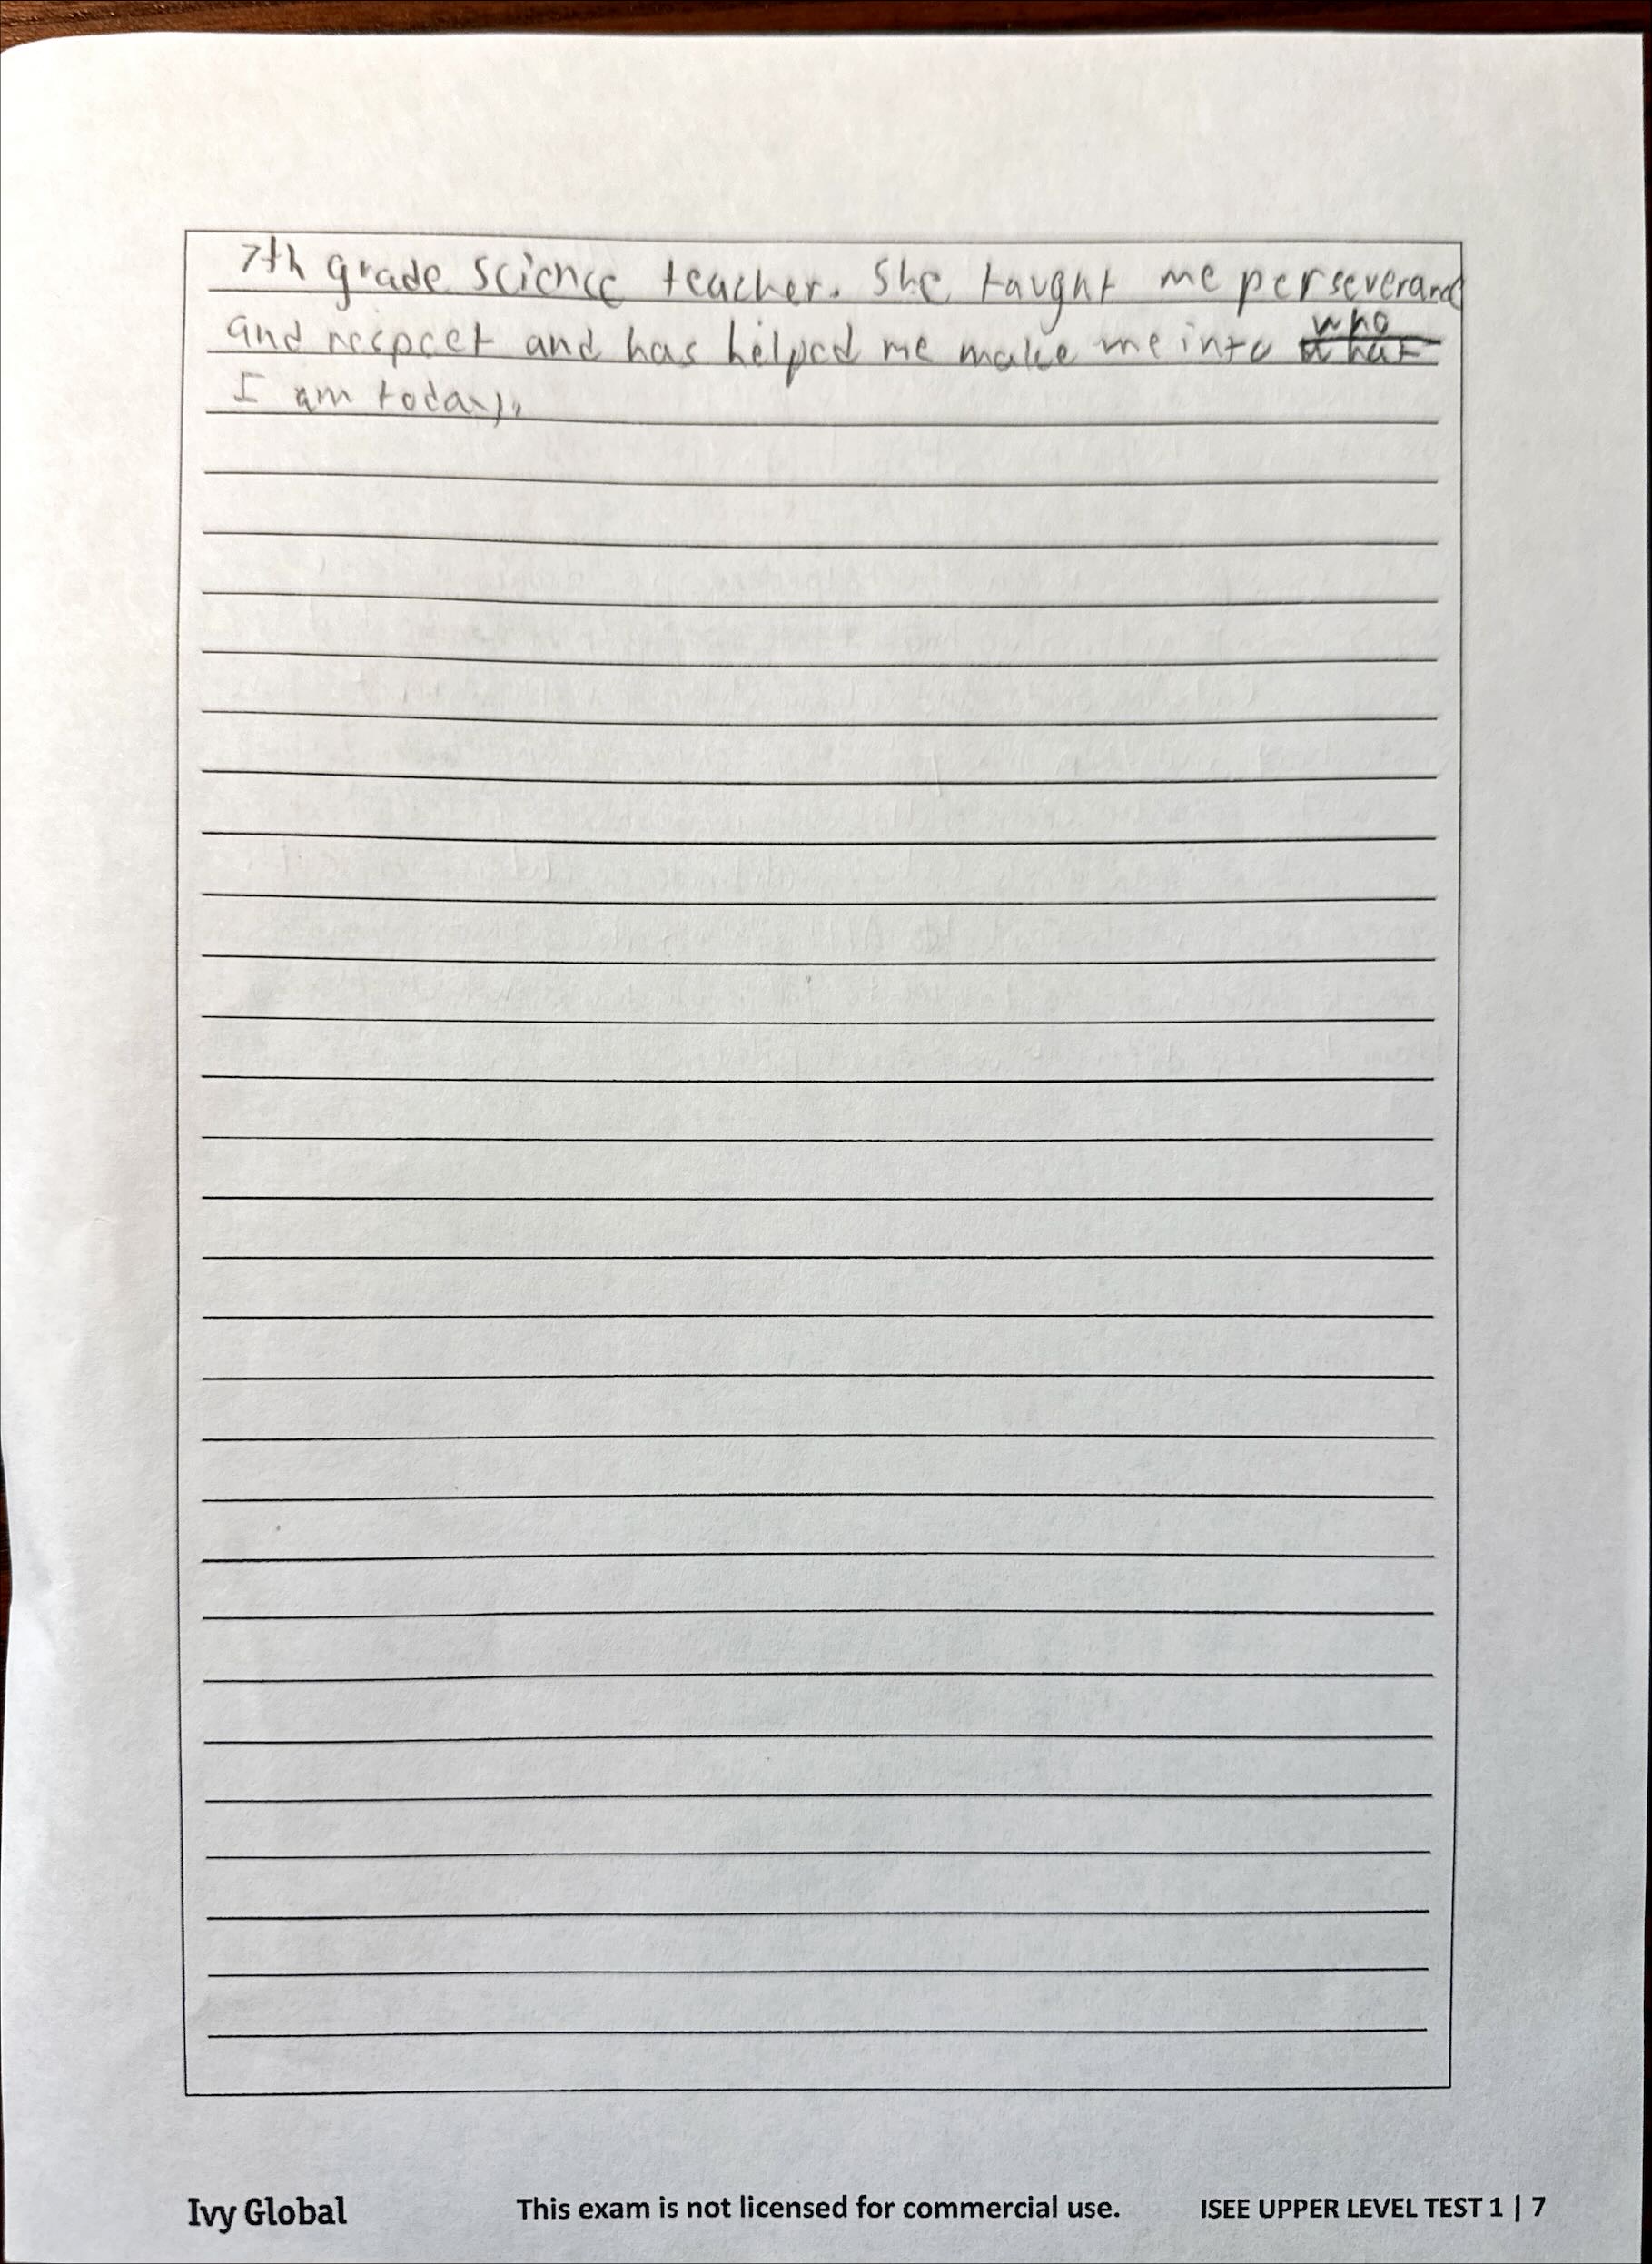 7th grade science teacher. She taught me perseverance
and respect and has helped me make me into who
I am today.
Ivy Global This exam is not licensed for commercial use. ISEE UPPER LEVEL TEST 1 | 7